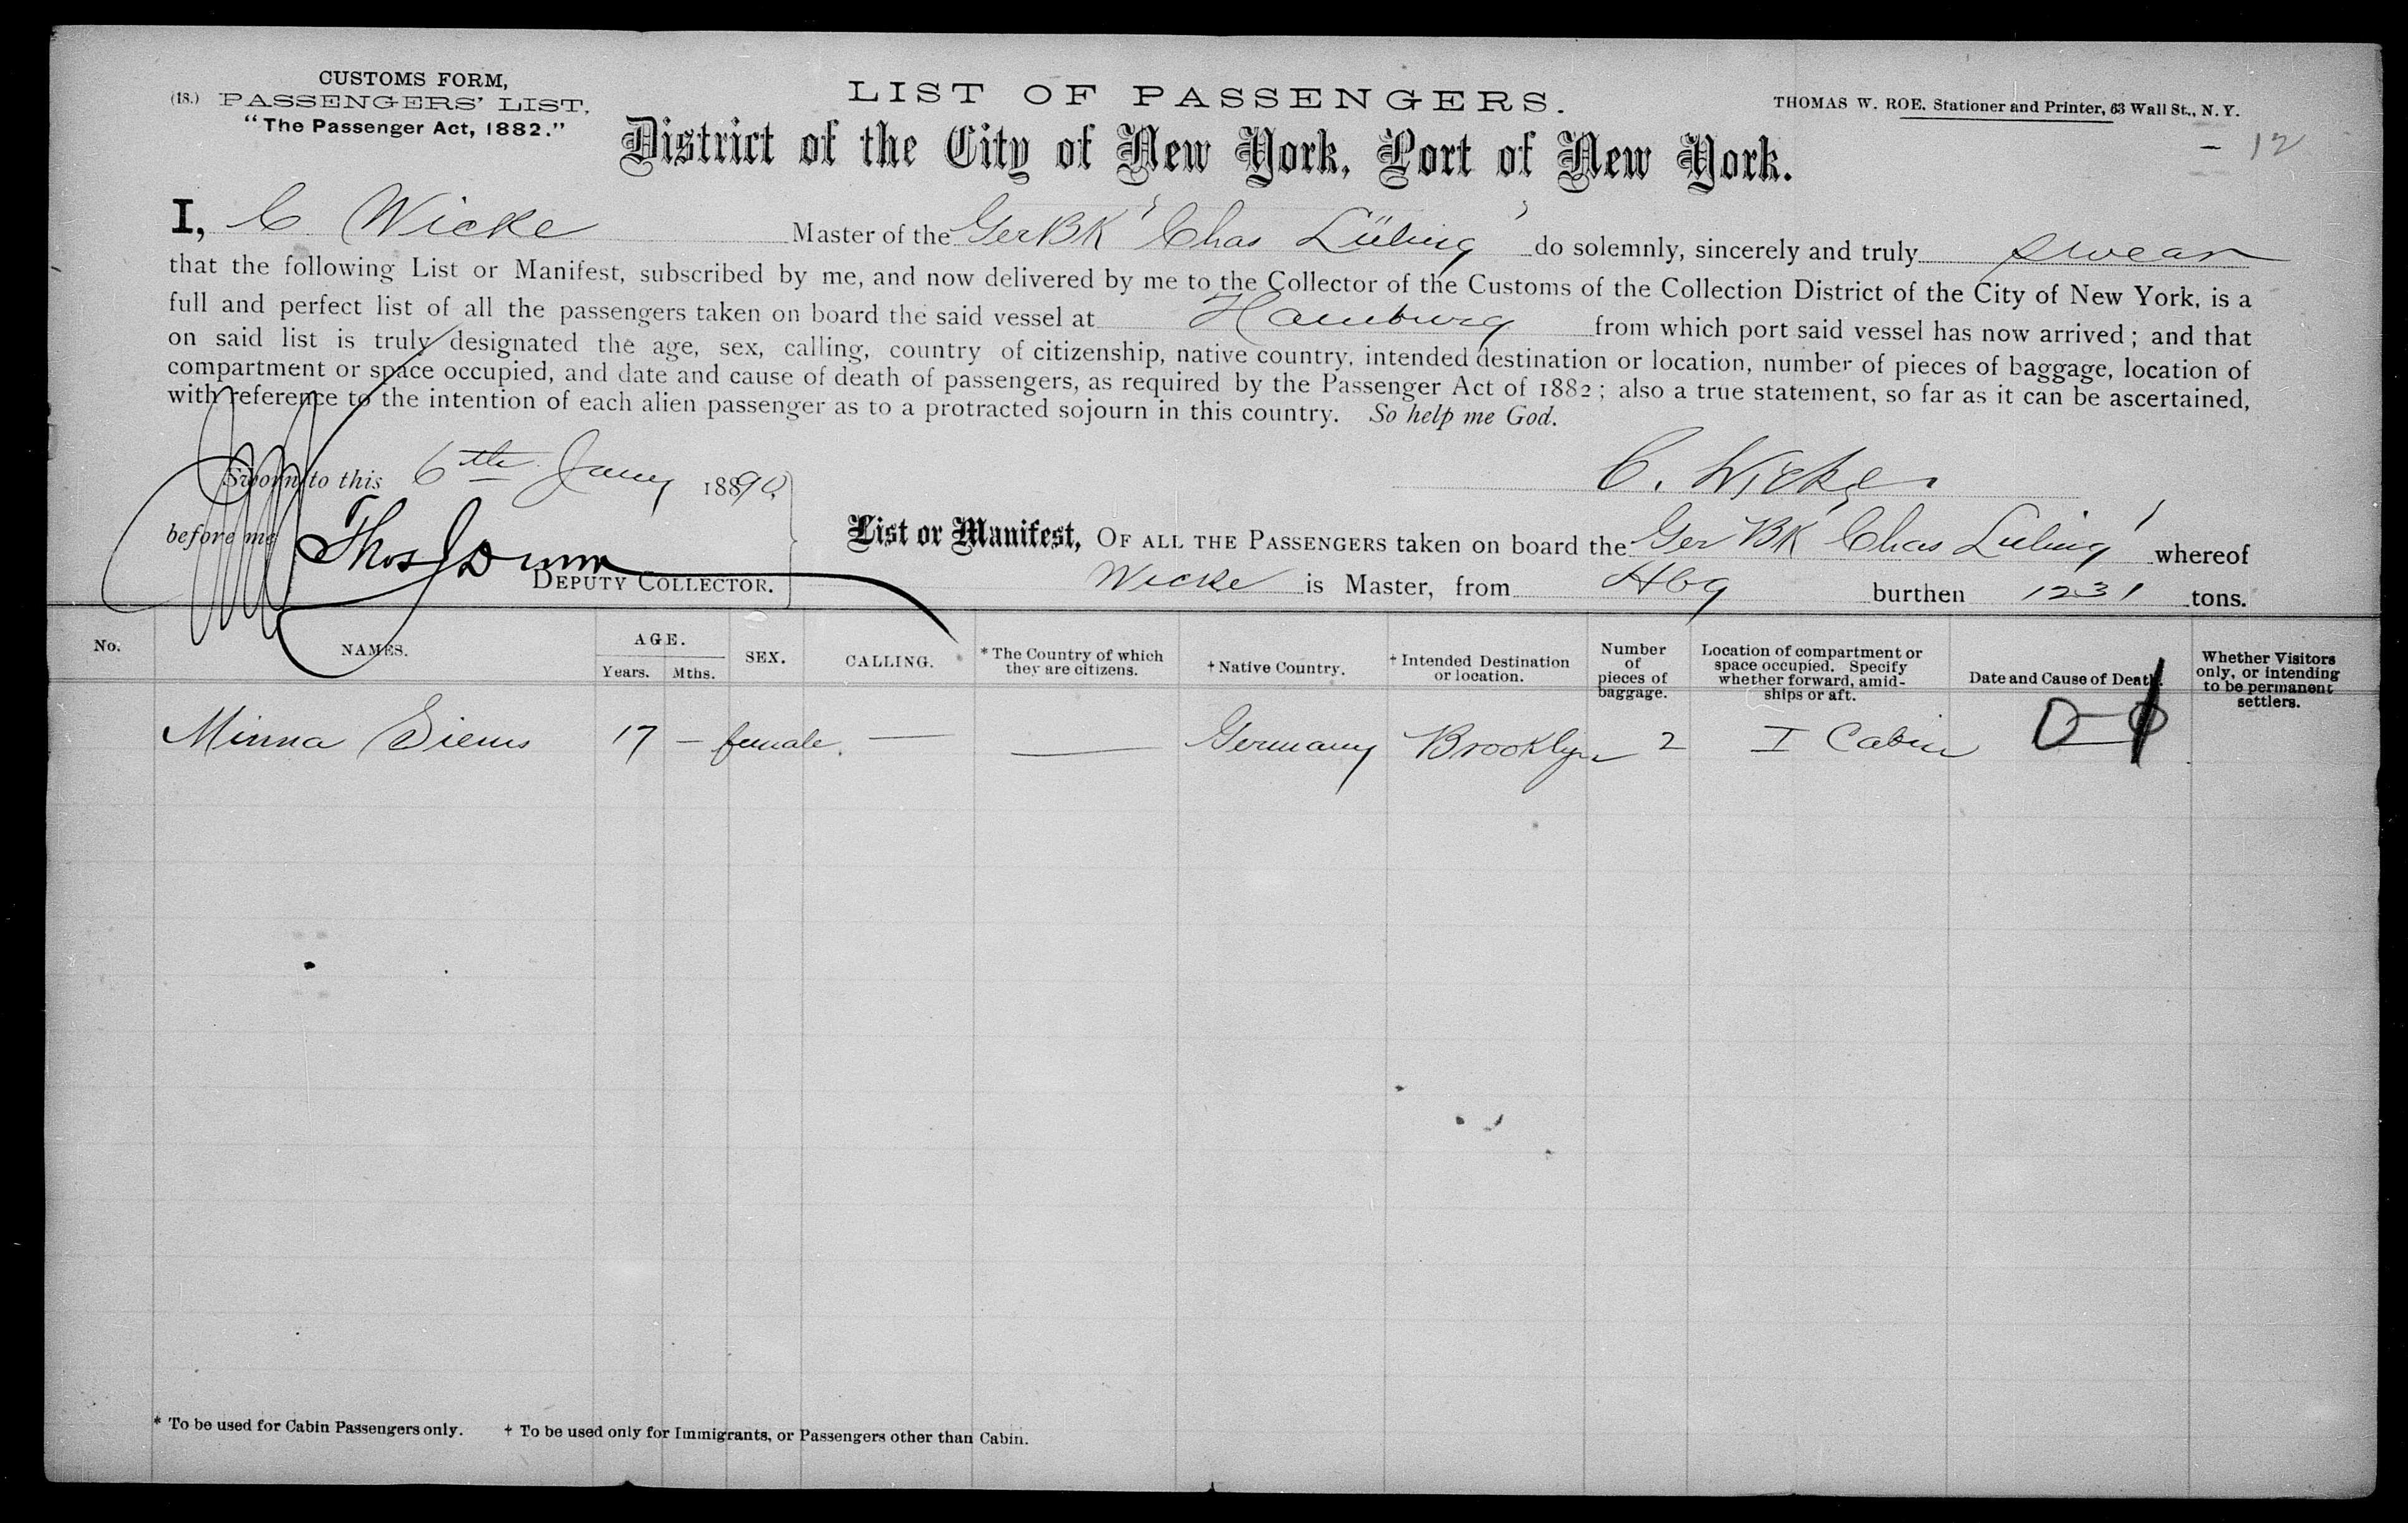 CUSTOMS FORM,
(18.) PASSENGERS' LIST,
"The Passenger Act, 1882."
LIST OF PASSENGERS.
THOMAS W. ROE, Stationer and Printer, 63 Wall St., N. Y.
District of the City of New York, Port of New York.
— 12
I, C Wicke Master of the Ger BK 'Chas Lüling' do solemnly, sincerely and truly swear
that the following List or Manifest, subscribed by me, and now delivered by me to the Collector of the Customs of the Collection District of the City of New York, is a
full and perfect list of all the passengers taken on board the said vessel at Hamburg from which port said vessel has now arrived; and that
on said list is truly designated the age, sex, calling, country of citizenship, native country, intended destination or location, number of pieces of baggage, location of
compartment or space occupied, and date and cause of death of passengers, as required by the Passenger Act of 1882; also a true statement, so far as it can be ascertained,
with reference to the intention of each alien passenger as to a protracted sojourn in this country. So help me God.
Sworn to this 6th Jany 1890.
C. Wicke
before me Thos J Dunn
DEPUTY COLLECTOR.
List or Manifest, OF ALL THE PASSENGERS taken on board the Ger BK 'Chas Luling' whereof
Wicke is Master, from Hbg burthen 1231 tons.
No. NAMES. AGE. Years. Mths. SEX. CALLING. * The Country of which they are citizens. † Native Country. † Intended Destination or location. Number of pieces of baggage. Location of compartment or space occupied. Specify whether forward, amidships or aft. Date and Cause of Death. Whether Visitors only, or intending to be permanent settlers.
Minna Siems 17 — female. — — Germany Brooklyn 2 I Cabin
* To be used for Cabin Passengers only. † To be used only for Immigrants, or Passengers other than Cabin.